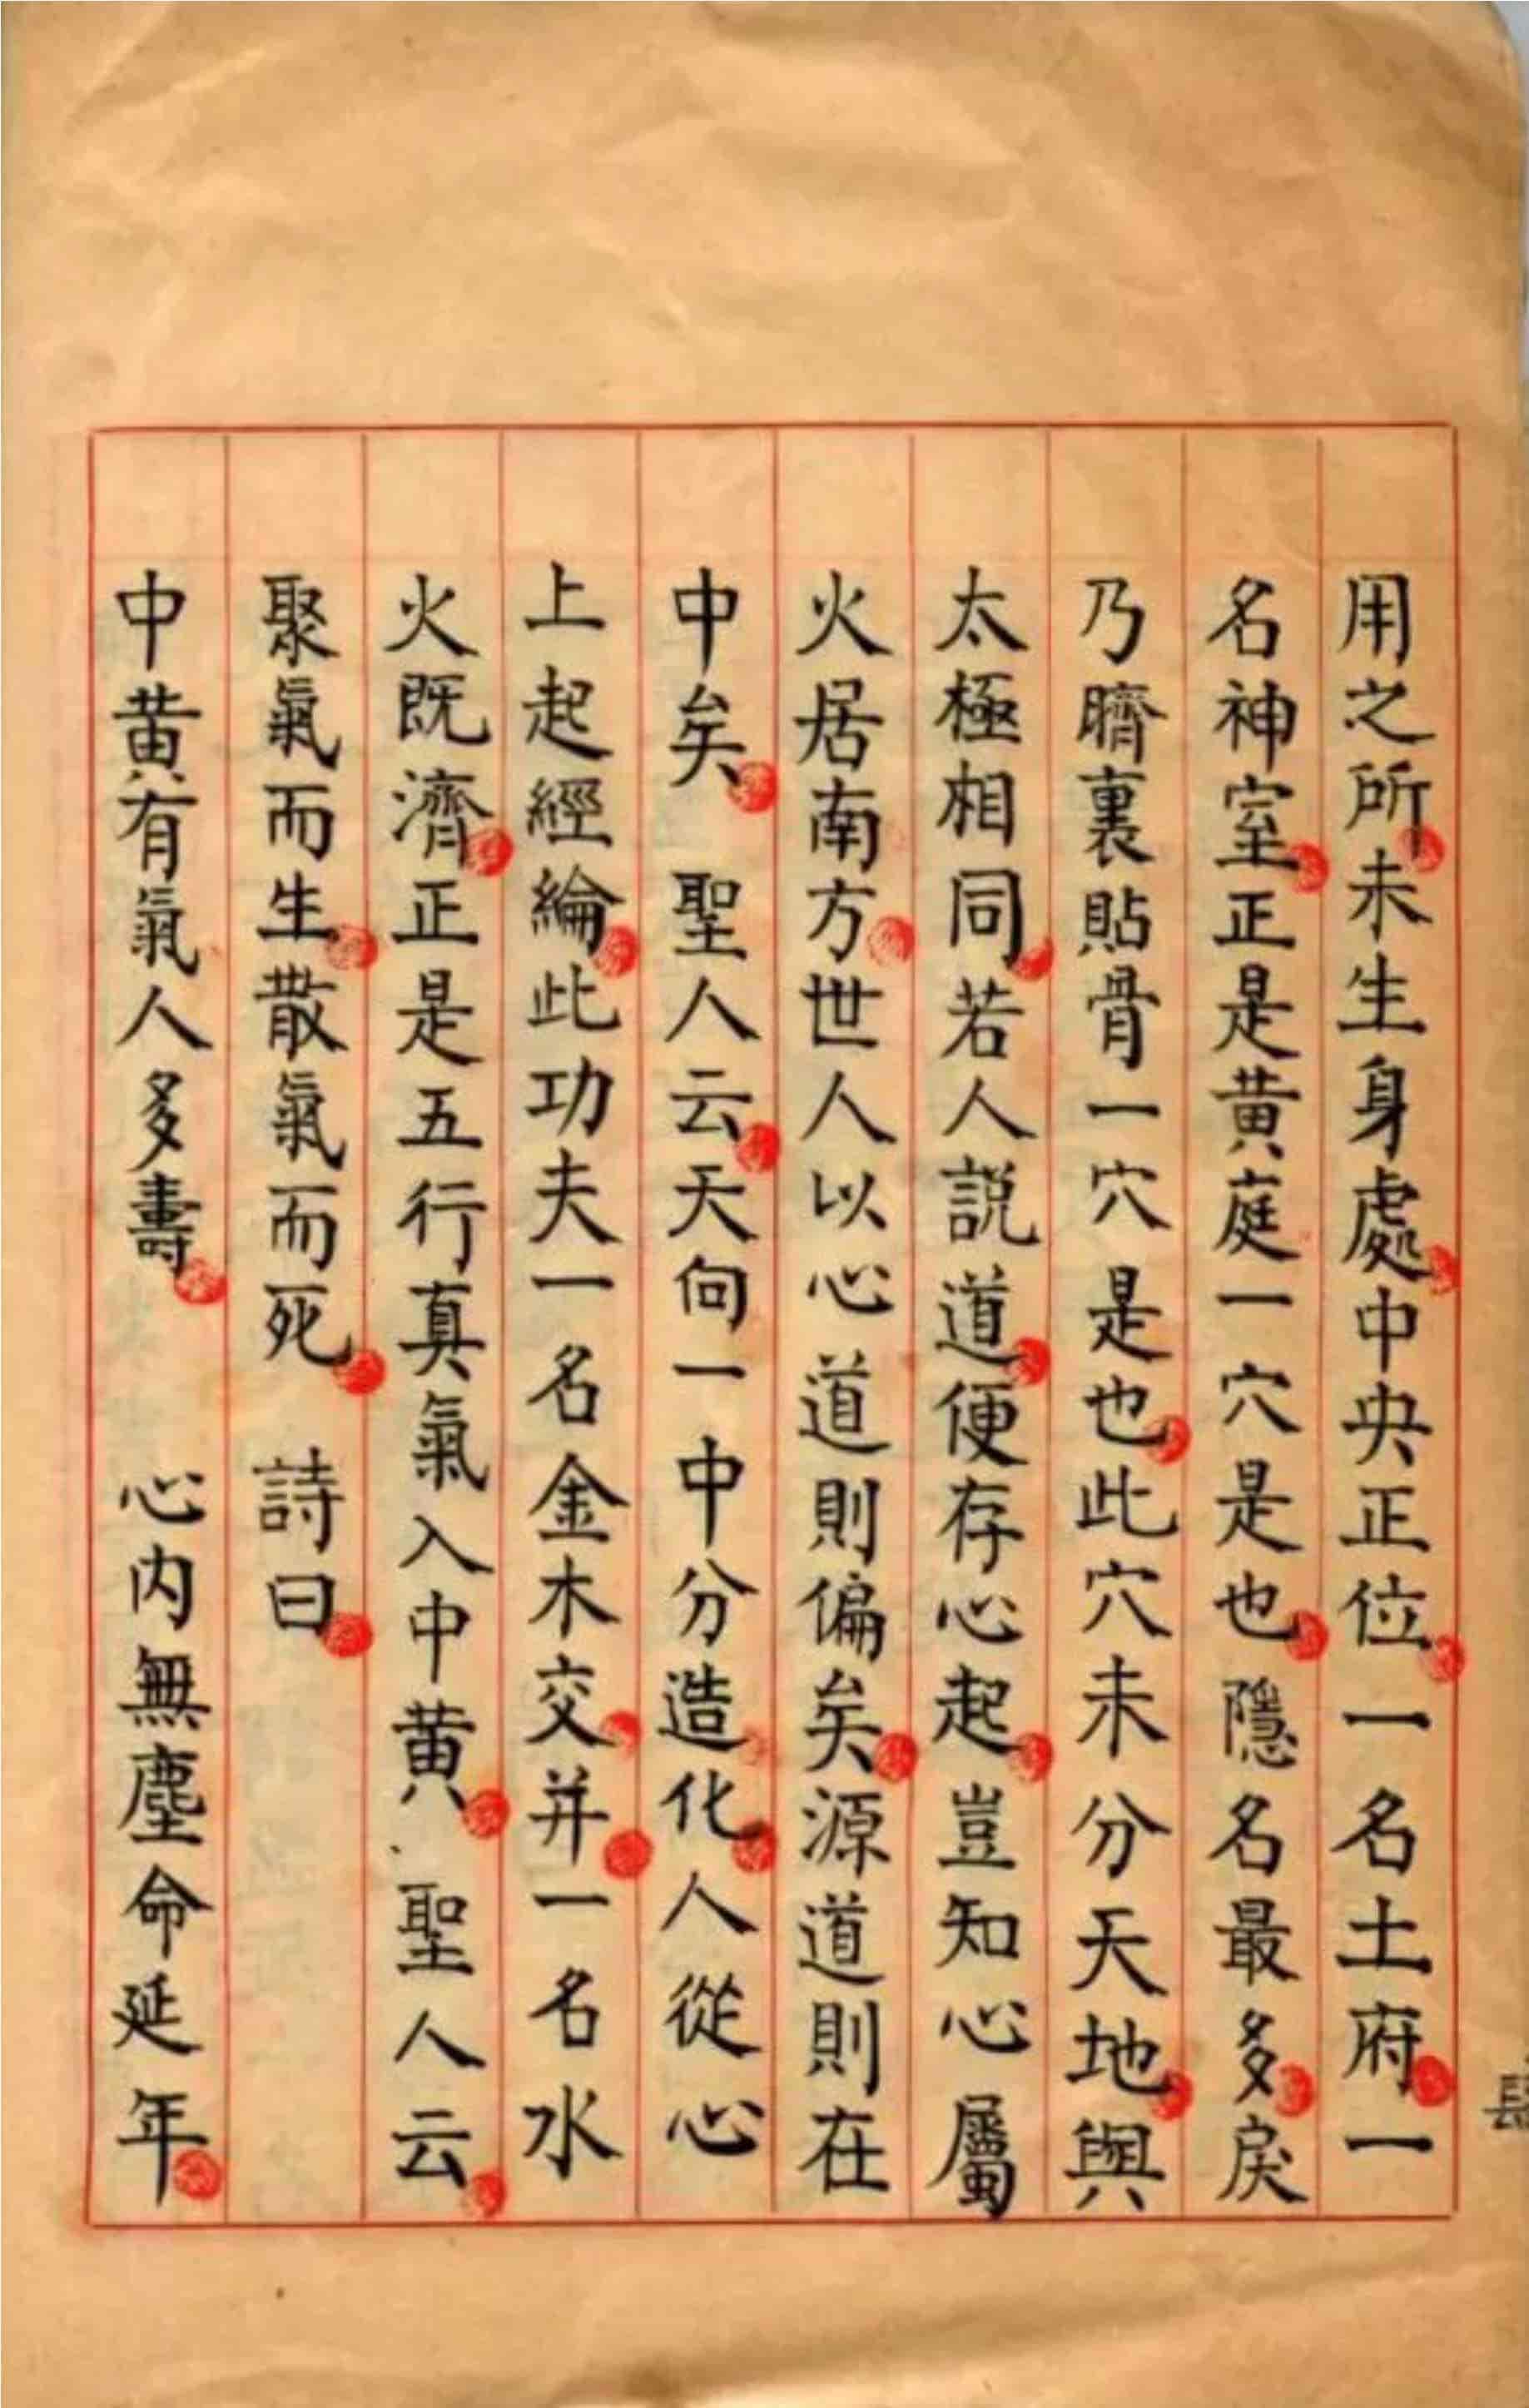 用之所未生身處中央正位一名土府一
名神室正是黃庭一穴是也隱名最多戾
乃臍裏貼骨一穴是也此穴未分天地與
太極相同若人説道便存心起豈知心屬
火居南方世人以心道則偏矣源道則在
中矣 聖人云天向一中分造化人從心
上起經綸此功夫一名金木交并一名水
火既濟正是五行真氣入中黃聖人云
聚氣而生散氣而死 詩曰
中黃有氣人多壽 心内無塵命延年